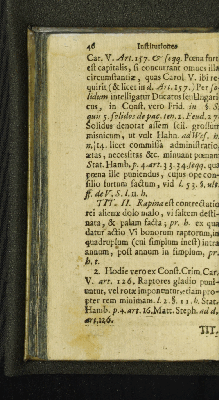 46 Institutiones
Car. V. Art. 157. & seqq. Pœna furt
est capitalis, si concurrant omnes illæ
circumstantiæ, quas Carol. V. ibi re-
quirit (& licet in d. Art. 157.) Per so-
lidum intelligatur Ducatus seu Ungari-
cus, in Const. vero Frid. in §. S.
quis 5. solidos de pac. ten. 2. Feud. 27.
Solidus denotat assem scil. grossum
misnicum, ut vult Hahn. ad Wes. h.
n. 14. licet commissa administratio,
ætas, necesitas &c. minuant pœnam
Stat. Hamb. p. 4. art. 33. 34. seqq. qua
pœna ille puniendus, cujus ope con-
silio furtum factum, vid l. 53. §. ult.
ff. de V. S. l. 11. h.
TIT. II. Rapina est contrectatio
rei alienæ dolo malo, vi saltem desti-
nata, & palam facta; pr. h. ex qua
datur actio Vi bonorum raptorum, in
quadruplum (cui simplum inest) intra
annum, post annum in simplum, pr.
h. t.
2. Hodie vero ex Const. Crim. Car.
V. art. 126. Raptores gladio puni-
untur, vel rotæ imponuntur, etiam pro-
pter rem minimam. l. 2. §. 11. h. Stat.
Hamb. p. 4. art. 16. Matt. Steph. ad d.
art. 126.
TIT.